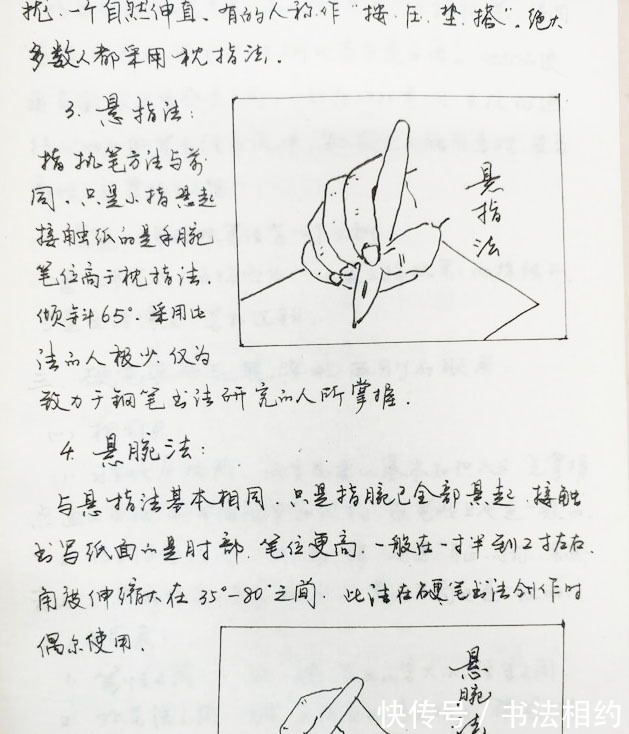 拢.一个自然伸直、有的人称作“按.压.垫.搭”。绝大
多数人都采用枕指法.
3. 悬指法:
指执笔方法与前
同.只是小指悬起
接触纸的是手腕
笔位高于枕指法.
倾斜65°.采用此
法的人极少.仅为
致力于钢笔书法研究的人所掌握.
悬指法
4. 悬腕法:
与悬指法基本相同.只是指腕已全部悬起.接触
书写纸面的是肘部.笔位更高.一般在一寸半到2寸左右.
角度伸缩大在35°-80°之间.此法在硬笔书法创作时
偶尔使用.
悬腕法
快传号/书法相约